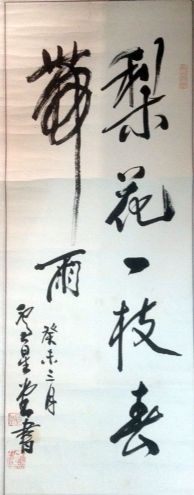 梨花一枝春
帶雨
癸未三月
星堂書